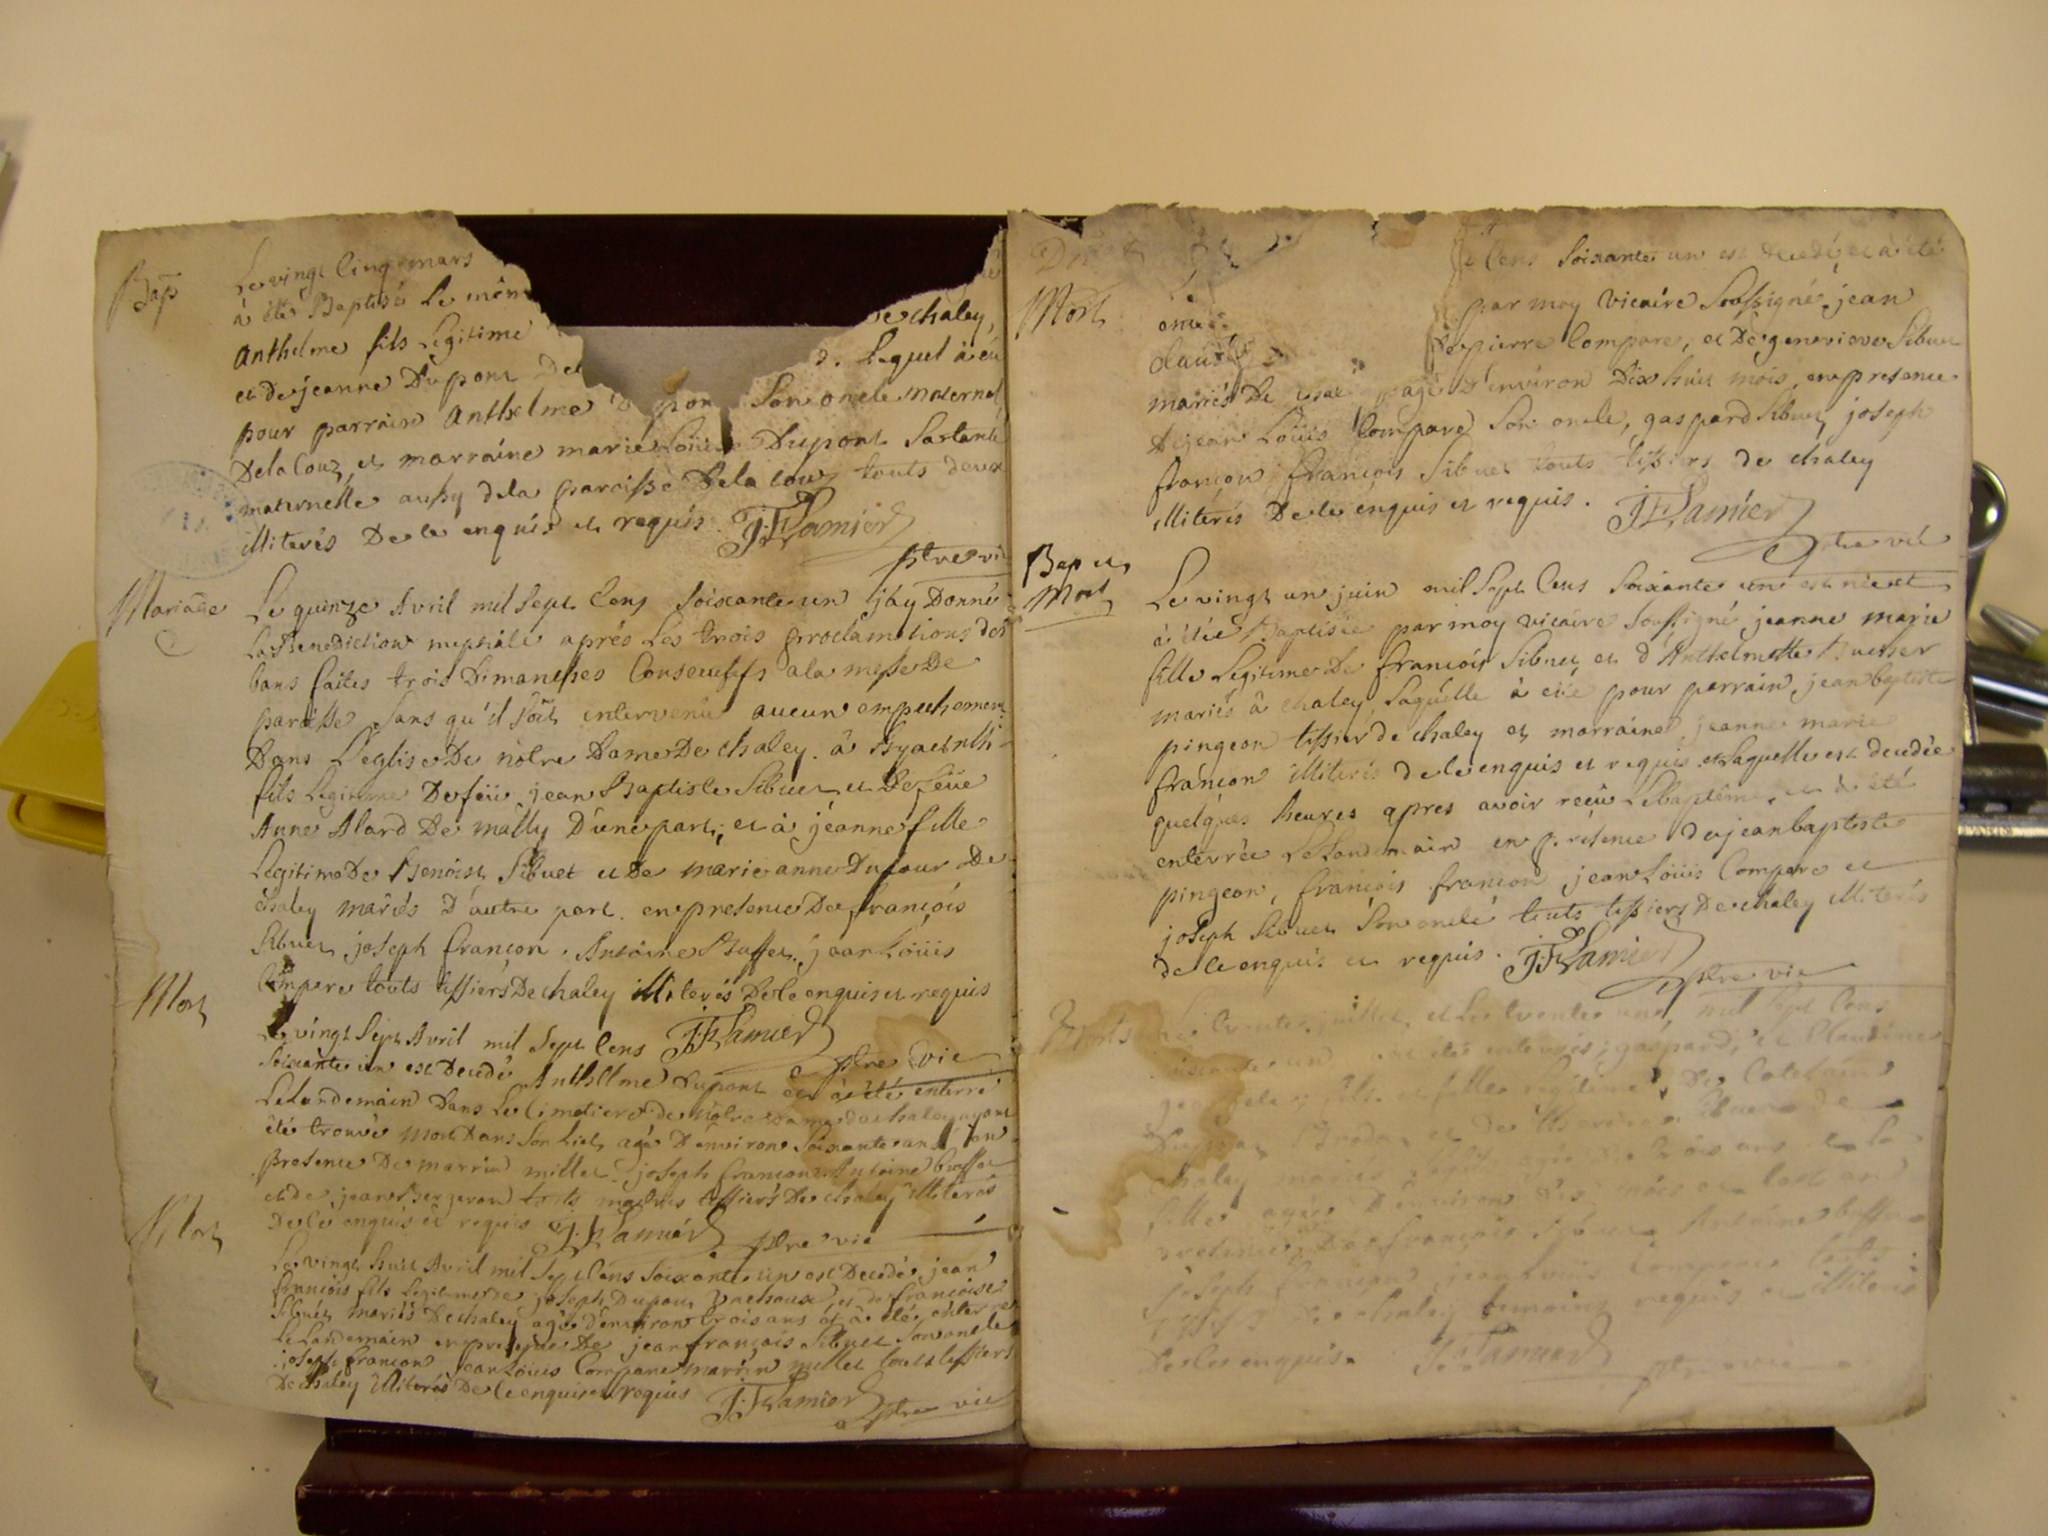 Bap
Le vingt cinq mars
à été Baptisé Le mêm
Anthelme fils Legitime De chaley,
et De jeanne Dupont De Lequel à eu
pour parrain Anthelme Dupon Son oncle maternel
De la Couz, et marraine marie Loüise Dupont Sa tante
maternelle aussy de la paroisse De la Couz touts deux
illiterés De ce enquis et requis. J:F Lamier
ptre vi
Mariage
Le quinze Avril mil Sept Cens Soixante un j'ay Donné
La Benediction nuptiale aprés Les trois proclamations des
bans faites trois Dimanches Consecutifs a la messe De
paroisse Sans qu'il soit intervenû aucun empechement
Dans L'eglise De nôtre Dame De chaley. à hyacinthe
fils Legitime De feü jean Baptiste Sibuet et De feüe
Anne Alard De mally D'une part; et à jeanne fille
Legitime De Benoist Sibuet et De marie anne Dufour De
chaley mariés D'autre part. en presence De françois
Sibuet joseph françon. Antoine Buffet. jean Loüis
Compere touts tissiers De chaley illiterés De ce enquis et requis
J:F Lamier
ptre vic
Mort
Le vingt Sept Avril mil Sept Cens
Soixante un est Decedé Anthelme Dupont et à été enterré
Le Landemain Dans Le Cimetiere de nôtre Dame de chaley ayant
été trouvé mort Dans Son Lict, agé D'environ Soixante ans en
presence De marrin millet. joseph françon Antoine buffet
et de jean touts tissiers De chaley illiterés
De ce enquis et requis J:F Lamier ptre vic
Mort
Le vingt huit Avril mil Sept Cens Soixante un est Decedé jean
françois fils Legitime de joseph Dupon et de françoise
Sibuet mariés De chaley agé D'environ trois ans et à été enterré
Le Landemain en presence De jean françois Sibuet Son oncle
joseph françon jean Loüis Compere marrin millet touts tissiers
De chaley illiterés De ce enquis et requis J:F Lamier
ptre vic
Mort
Cens Soixante un est decedé et à été
par moy vicaire Soussigné jean
claude De pierre Compere, et De genevieve Sibuet
mariés De agé D'environ Dix huit mois, en presence
De jean Loüis Compare Son oncle, gaspard Sibuet joseph
françon françois Sibuet touts tissiers de chaley
illiterés De ce enquis et requis. J:F Lamier
ptre vic
Bap et
Mort
Le vingt un juin mil Sept Cens Soixante un est née et
à été Baptisée par moy vicaire Soussigné jeanne marie
fille Legitime De françois Sibuet et d'Anthelmette
mariés à chaley Laquelle à eüe pour parrain jean baptiste
pingeon tissier de chaley et marraine jeanne marie
françon illiterés de ce enquis et requis. et Laquelle est decedée
quelques heures apres avoir reçû Le baptême, et à été
enterrée Le Landemain en presence de jean baptiste
pingeon, françois françon jean Loüis Compere et
joseph Sibuet Son oncle touts tissiers De chaley illiterés
de ce enquis et requis. J:F Lamier
ptre vic
Morts
Le trente juillet, et Le trente un, mil Sept Cens
Soixante un ont été enterrés; gaspard, et Claudine
fils et fille Legitimes De
et De Sibuet de
chaley mariés trois ans et La
fille agée D'environ Dix mois
presence De françois Sibuet Antoine buffet
joseph françon, jean Louis Compere touts
de chaley temoins requis et illiterés
De ce enquis. J:F Lamier ptre vic